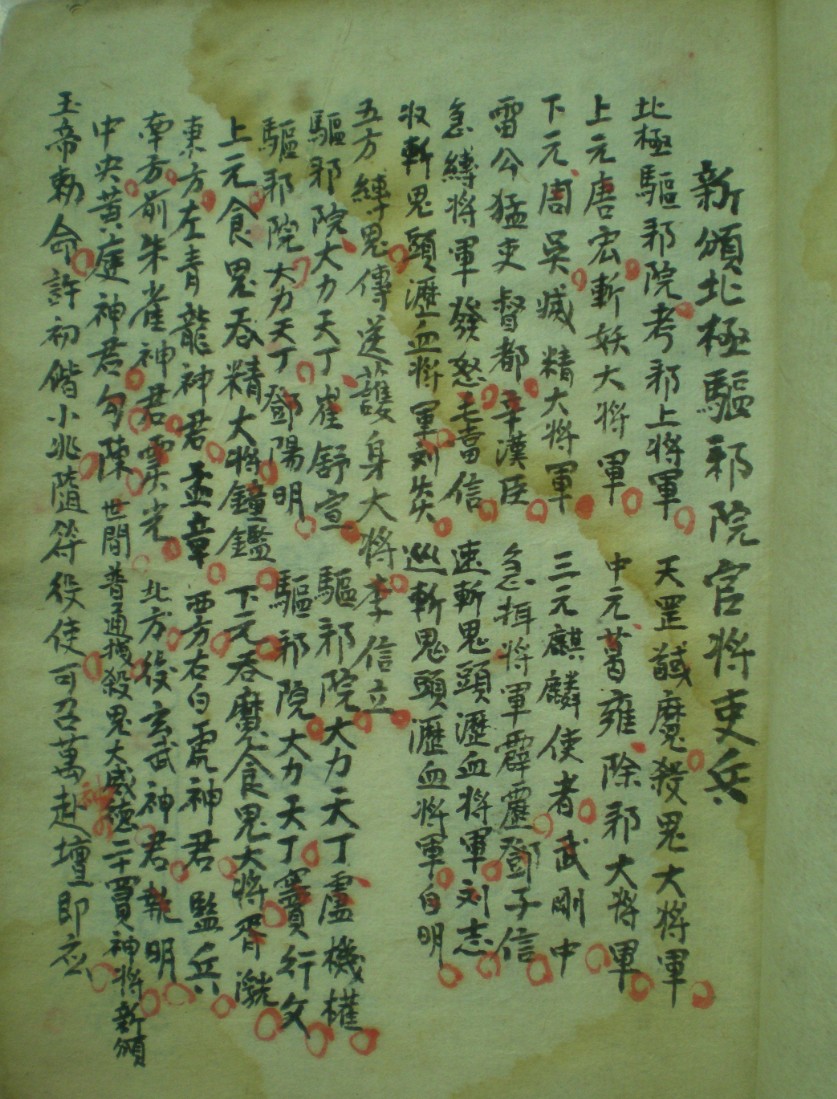 新頒北極驅邪院官將吏兵
北極驅邪院考邪上將軍 天罡馘魔殺鬼大將軍
上元唐宏斬妖大將軍 中元葛雍除邪大將軍
下元周吳滅精大將軍 三元麒麟使者武剛中
雷公猛吏督都辛漢臣 急捉將軍霹靂鄧子信
急縛將軍發怒毛喜信 速斬鬼頭瀝血將軍刘志
收斬鬼頭瀝血將軍刘炎 巡斬鬼頭瀝血將軍白明
五方縛鬼傳送護身大將李信立
驅邪院大力天丁崔舒宣 驅邪院大力天丁盧機權
驅邪院大力天丁鄧陽明 驅邪院大力天丁竇行文
上元食鬼吞精大將鐘鑑 下元吞魔食鬼大將胥
東方左青龍神君孟章 西方右白虎神君監兵
南方前朱雀神君灵光 北方後玄武神君執明
中央黃庭神君勾陳 世間普通殺鬼大威德二十神將新頒
玉帝勅命許初偕小兆隨符役使可召萬赴壇即应